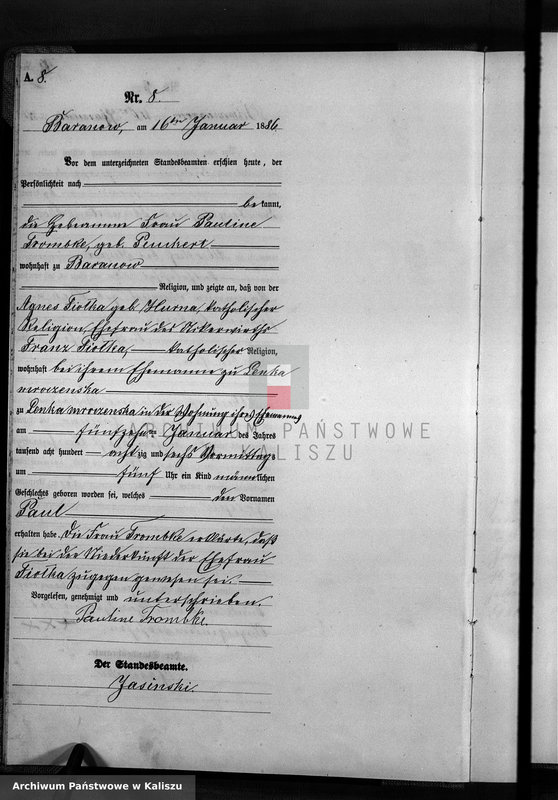 A. 8.
Nr. 8.
Baranow, am 16ten Januar 1886
Vor dem unterzeichneten Standesbeamten erschien heute, der
Persönlichkeit nach
be kannt,
die Hebeamme Frau Pauline
Trombke, geb. Penckert
wohnhaft zu Baranow
Religion, und zeigte an, daß von der
Agnes Fiolka geb. Hurna, katholischer
Religion, Ehefrau des Ackerwirths
Franz Fiolka, katholischer Religion,
wohnhaft bei ihrem Ehemanne zu Lenka
mroczenska
zu Lenka mroczenska in der Wohnung ihres Ehemannes
am fünfzehnten Januar des Jahres
tausend acht hundert acht zig und sechs Vormittags
um fünf Uhr ein Kind männlichen
Geschlechts geboren worden sei, welches den Vornamen
Paul
erhalten habe. Die Frau Trombke erklärte, daß
sie bei der Niederkunft der Ehefrau
Fiolka zugegen gewesen sei.
Vorgelesen, genehmigt und unterschrieben.
Pauline Trombke.
Der Standesbeamte.
Jasinski.
ARCHIWUM PAŃSTWOWE
W KALISZU
Archiwum Państwowe w Kaliszu